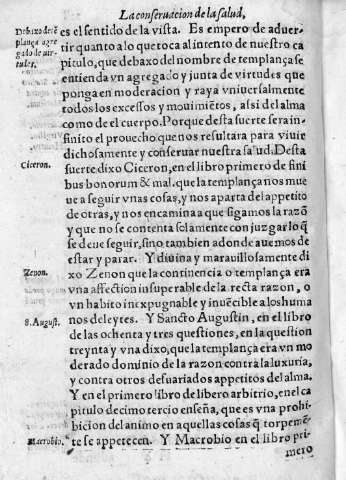 La conseruacion de la salud,
Debaxo dē tē
plança agre
gado de vir-
tudes.
es el sentido de la vista. Es empero de aduer-
tir quanto a lo que toca al intento de nuestro ca
pitulo, que debaxo del nombre de templança se
entienda vn agregado y junta de virtudes que
ponga en moderacion y raya vniuersalmente
todos los excessos y mouimiētos, assi del alma
como de el cuerpo. Porque desta suerte sera in-
finito el prouecho que nos resultara para viuir
dichosamente y conseruar nuestra salud. Desta
Ciceron.
suerte dixo Ciceron, en el libro primero de fini
bus bonorum & mal. que la templança nos mue
ue a seguir vnas cosas, y nos aparta del appetito
de otras, y nos encamina a que sigamos la razō
y que no se contenta solamente con juzgar lo q̄
se deue seguir, sino tambien adonde auemos de
estar y parar. Y diuina y marauillosamente di
Zenon.
xo Zenon que la continencia o templança era
vna affection insuperable de la recta razon, o
vn habito inexpugnable y inuēcible a los huma
nos deleytes. Y Sancto Augustin, en el libro
S. August.
de las ochenta y tres questiones, en la question
treynta y vna dixo, que la templança era vn mo
derado dominio de la razon contra la luxuria,
y contra otros desuariados appetitos del alma.
Y en el primero libro de libero arbitrio, en el ca
pitulo decimo tercio enseña, que es vna prohi-
bicion del animo en aquellas cosas q̄ torpemē-
Macrobio.
te se appetecen. Y Macrobio en el libro pri-
mero